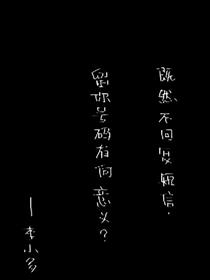 既然不回发短信.
留你号码有何意义?
—李小多